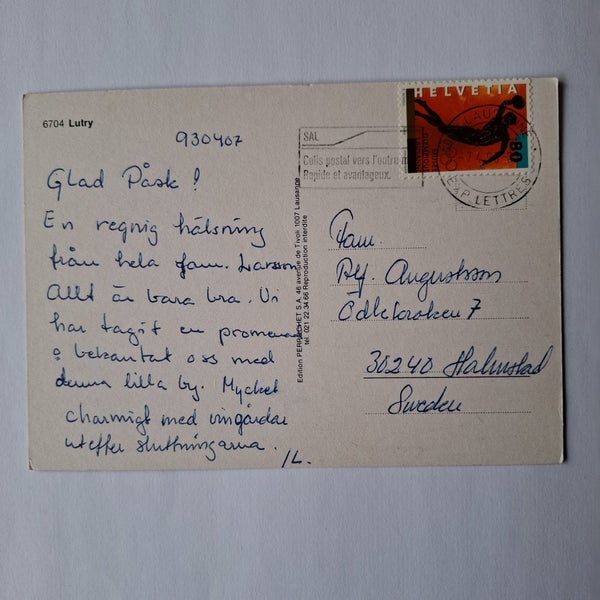 6704 Lutry
930407
Glad Påsk!
En regnig hälsning
från hela fam. Larsson
Allt är bara bra. Vi
har tagit en promenad
o bekantat oss med
denna lilla by. Mycket
charmigt med vingårdar
utefter sluttningarna.
/L.
Edition PERROCHET S.A. 46 avenue de Tivoli 1007 Lausanne
tél. 021 22 34 66 Reproduction interdite
SAL
Colis postal vers l'outre-m
Rapide et avantageux.
HELVETIA
80
EXP. LETTRES
Fam.
Alf. Augustsson
30240 Halmstad
Sweden